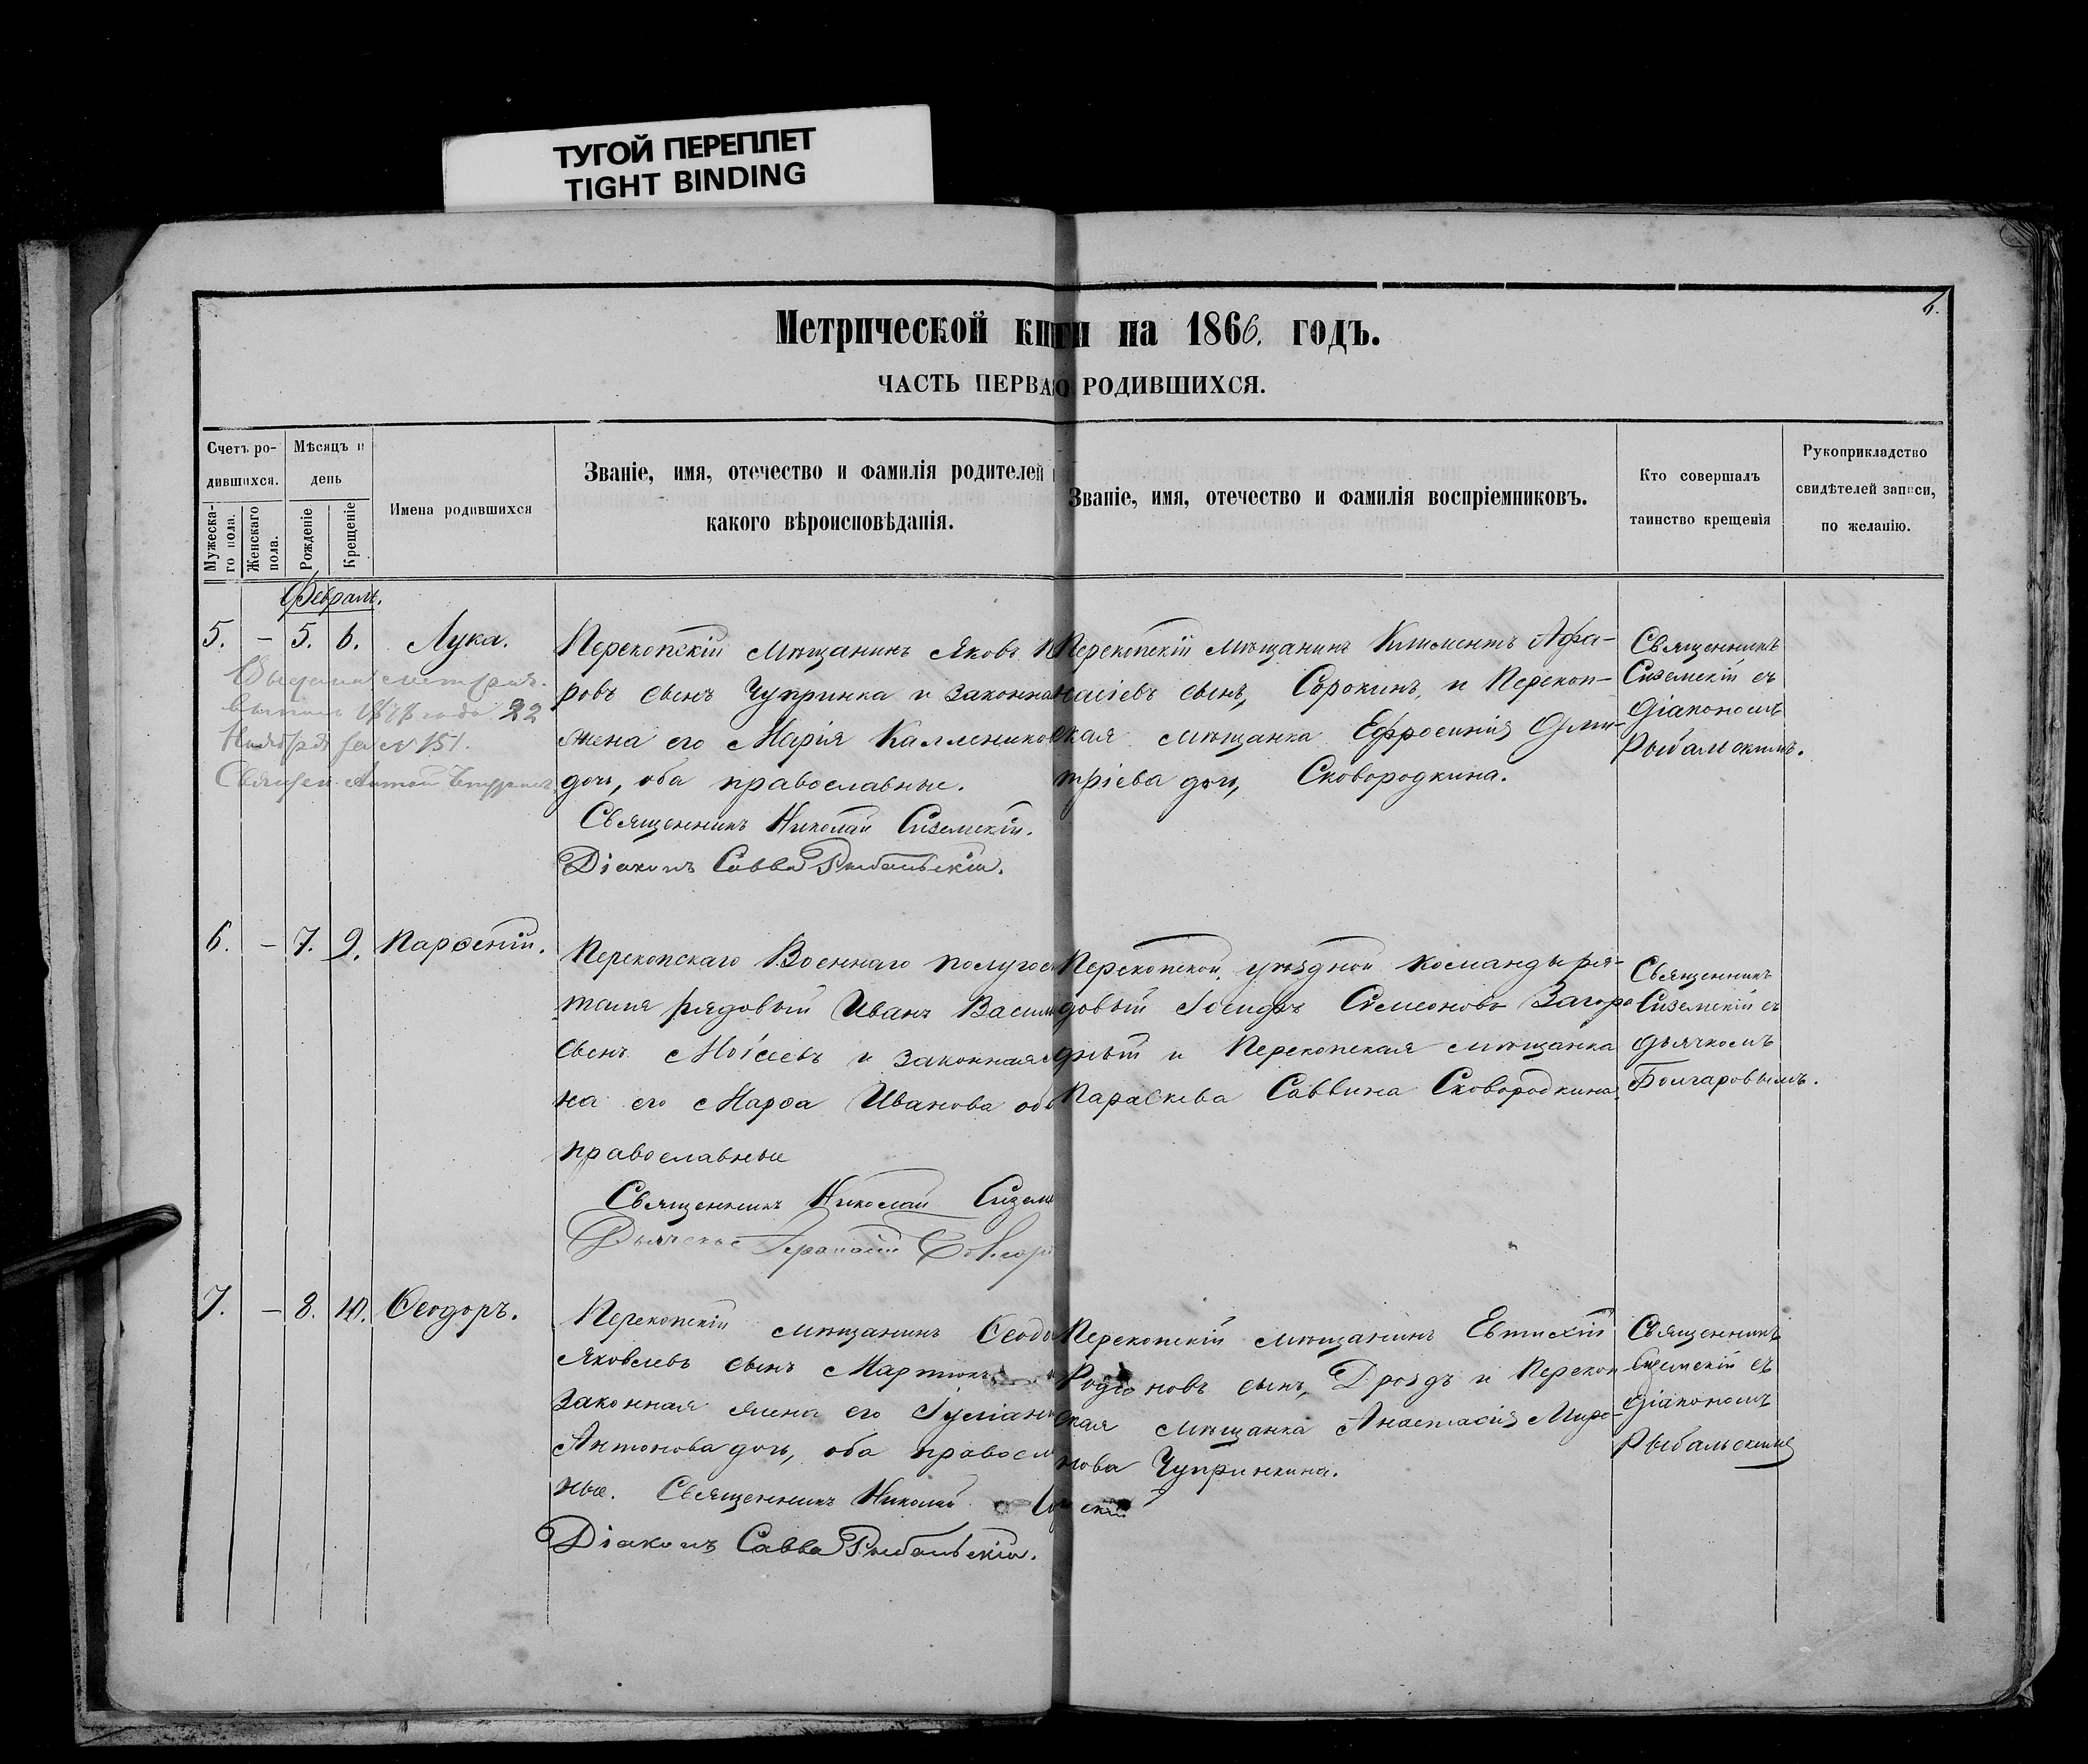 ТУГОЙ ПЕРЕПЛЕТ
TIGHT BINDING
6.
Метрической книги на 1866. годъ.
ЧАСТЬ ПЕРВАЯ О РОДИВШИХСЯ.
Счетъ ро-
дившихся.
Мужеска-
го пола.
Женскаго
пола.
Мѣсяцъ и
день
Рожденіе
Крещеніе
Имена родившихся
Званіе, имя, отечество и фамилія родителей и
какого вѣроисповѣданія.
Званіе, имя, отечество и фамилія воспріемниковъ.
Кто совершалъ
таинство крещенія
Рукоприкладство
свидѣтелей записи,
по желанію.
Февраль.
5. – 5. 6. Лука.
1878 года 22
Ноября за № 151.
Перекопскій мѣщанинъ Яковъ
ровъ сынъ Чупринка и законная
жена его Марія Калленикова
дочь, оба православные.
Священникъ Николай Сиземскій.
Діаконъ Савва Рыбальскій.
Перекопскій мѣщанинъ Климентъ Афа-
насіевъ сынъ, Сорокинъ, и Перекоп-
ская мѣщанка Ефросинія Дми-
тріева дочь, Сковородкина.
Священникъ
Сиземскій съ
діакономъ
Рыбальскимъ.
6. – 7. 9. Парѳеній.
Перекопскаго Военнаго полугос
питаля рядовый Иванъ Васил
сынъ Моісеевъ и законная
на его Марѳа Иванова оба
православные
Священникъ Николай Сизем
Дьячекъ Болгар
Перекопской уѣздной команды ря-
довый Іосифъ Симеоновъ Загоро
дный и Перекопская мѣщанка
Параскева Саввина Сковородкина.
Священникъ
Сиземскій съ
дьячкомъ
Болгаровымъ.
7. – 8. 10. Ѳеодоръ.
Перекопскій мѣщанинъ Ѳеодо
Яковлевъ сынъ
законная жена его Іуліан
Антонова дочь, оба правосл
ные. Священникъ Николай
Діаконъ Савва Рыбальскій.
Перекопскій мѣщанинъ Евтихій
Родіоновъ сынъ, Дроздъ и Перекоп
ская мѣщанка Анастасія Миро-
нова Чупринкина.
Священникъ
Сиземскій съ
діакономъ
Рыбальскимъ